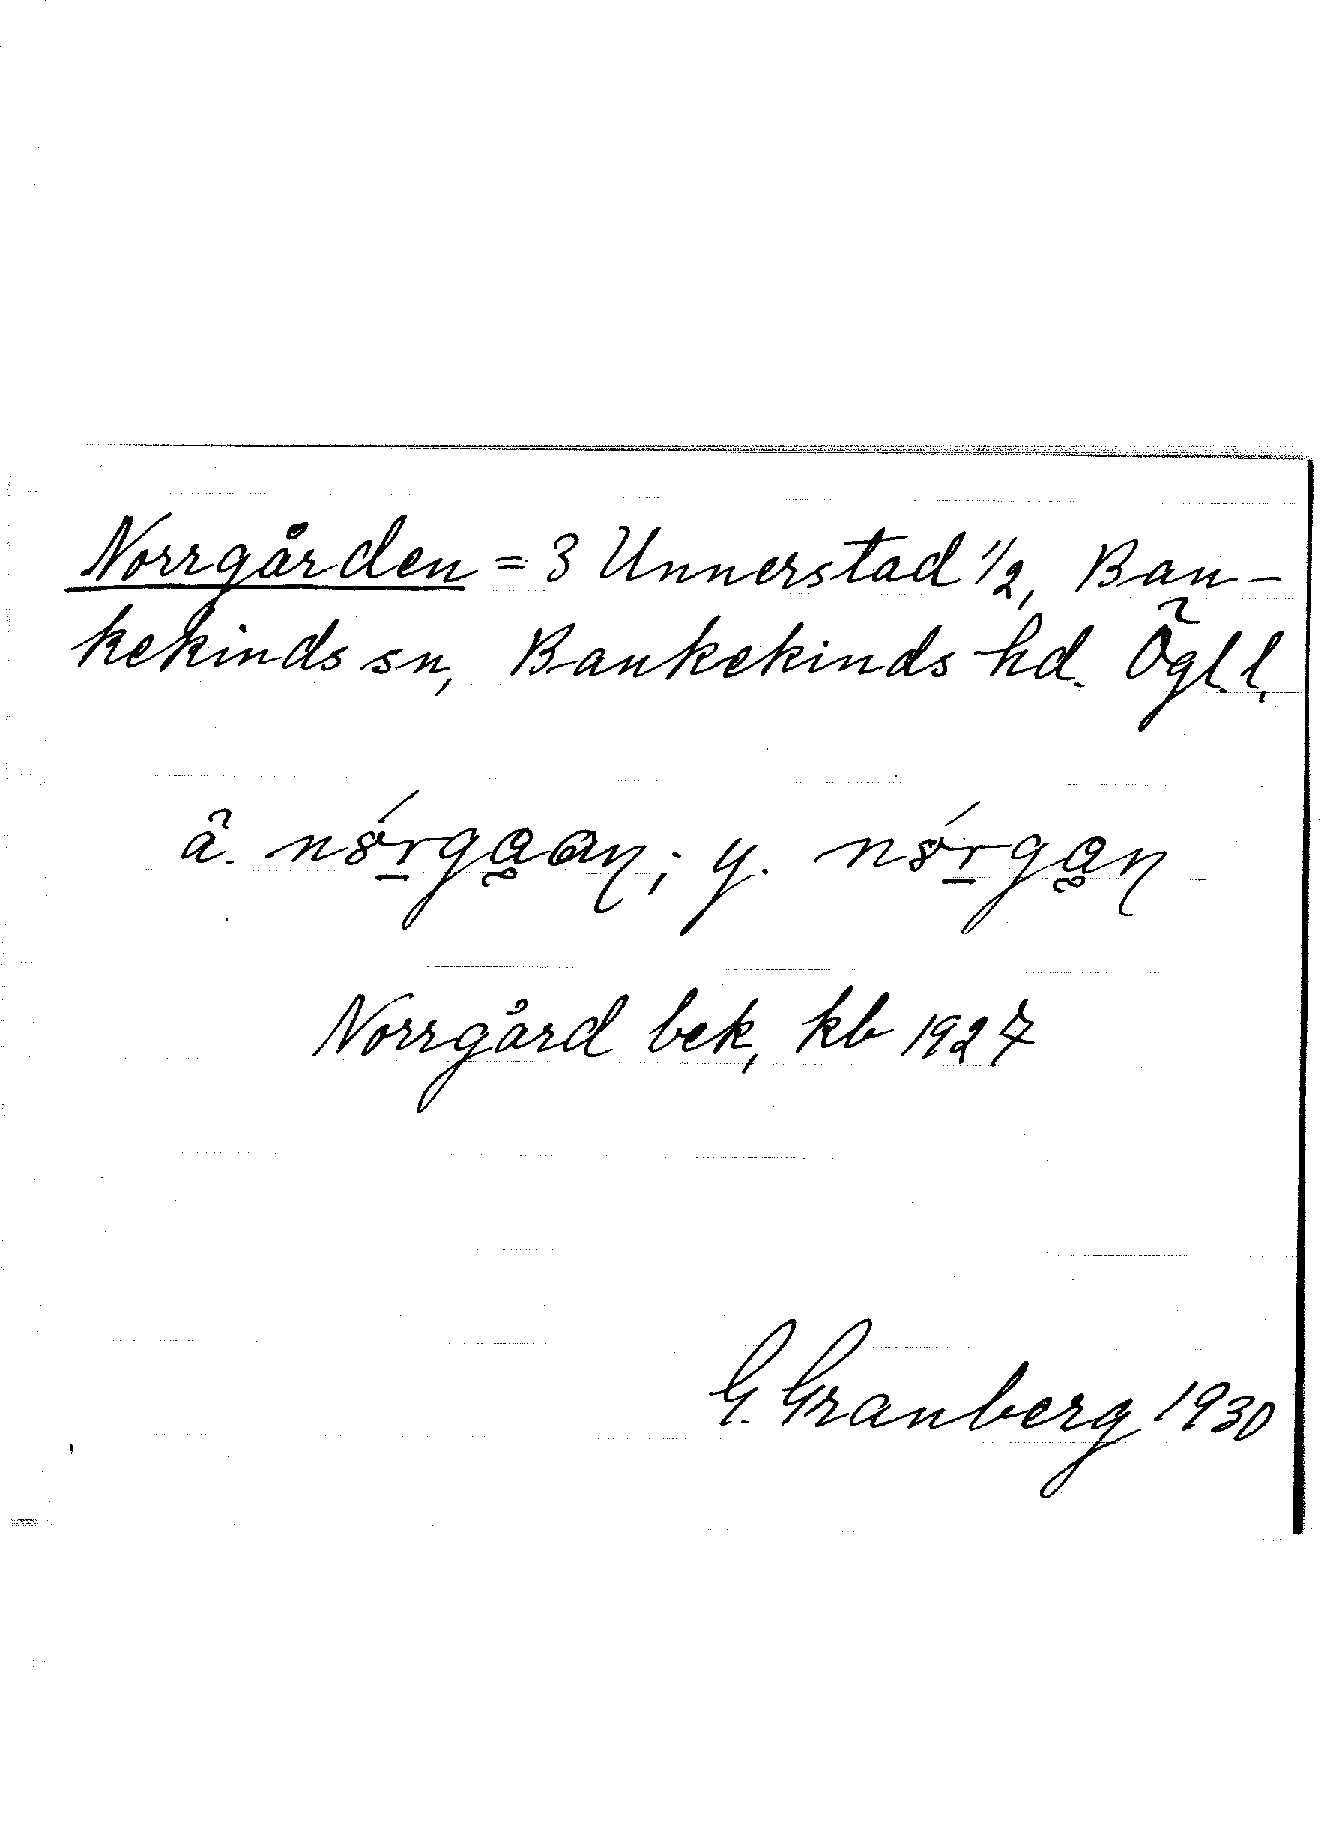 Norrgården = 3 Unnerstad 1/2, Ban-
kekinds sn, Bankekinds hd. Ögl. l.
ä. nórgaan; y. nórgan
Norrgård bek, kb 1927
G. Granberg 1930